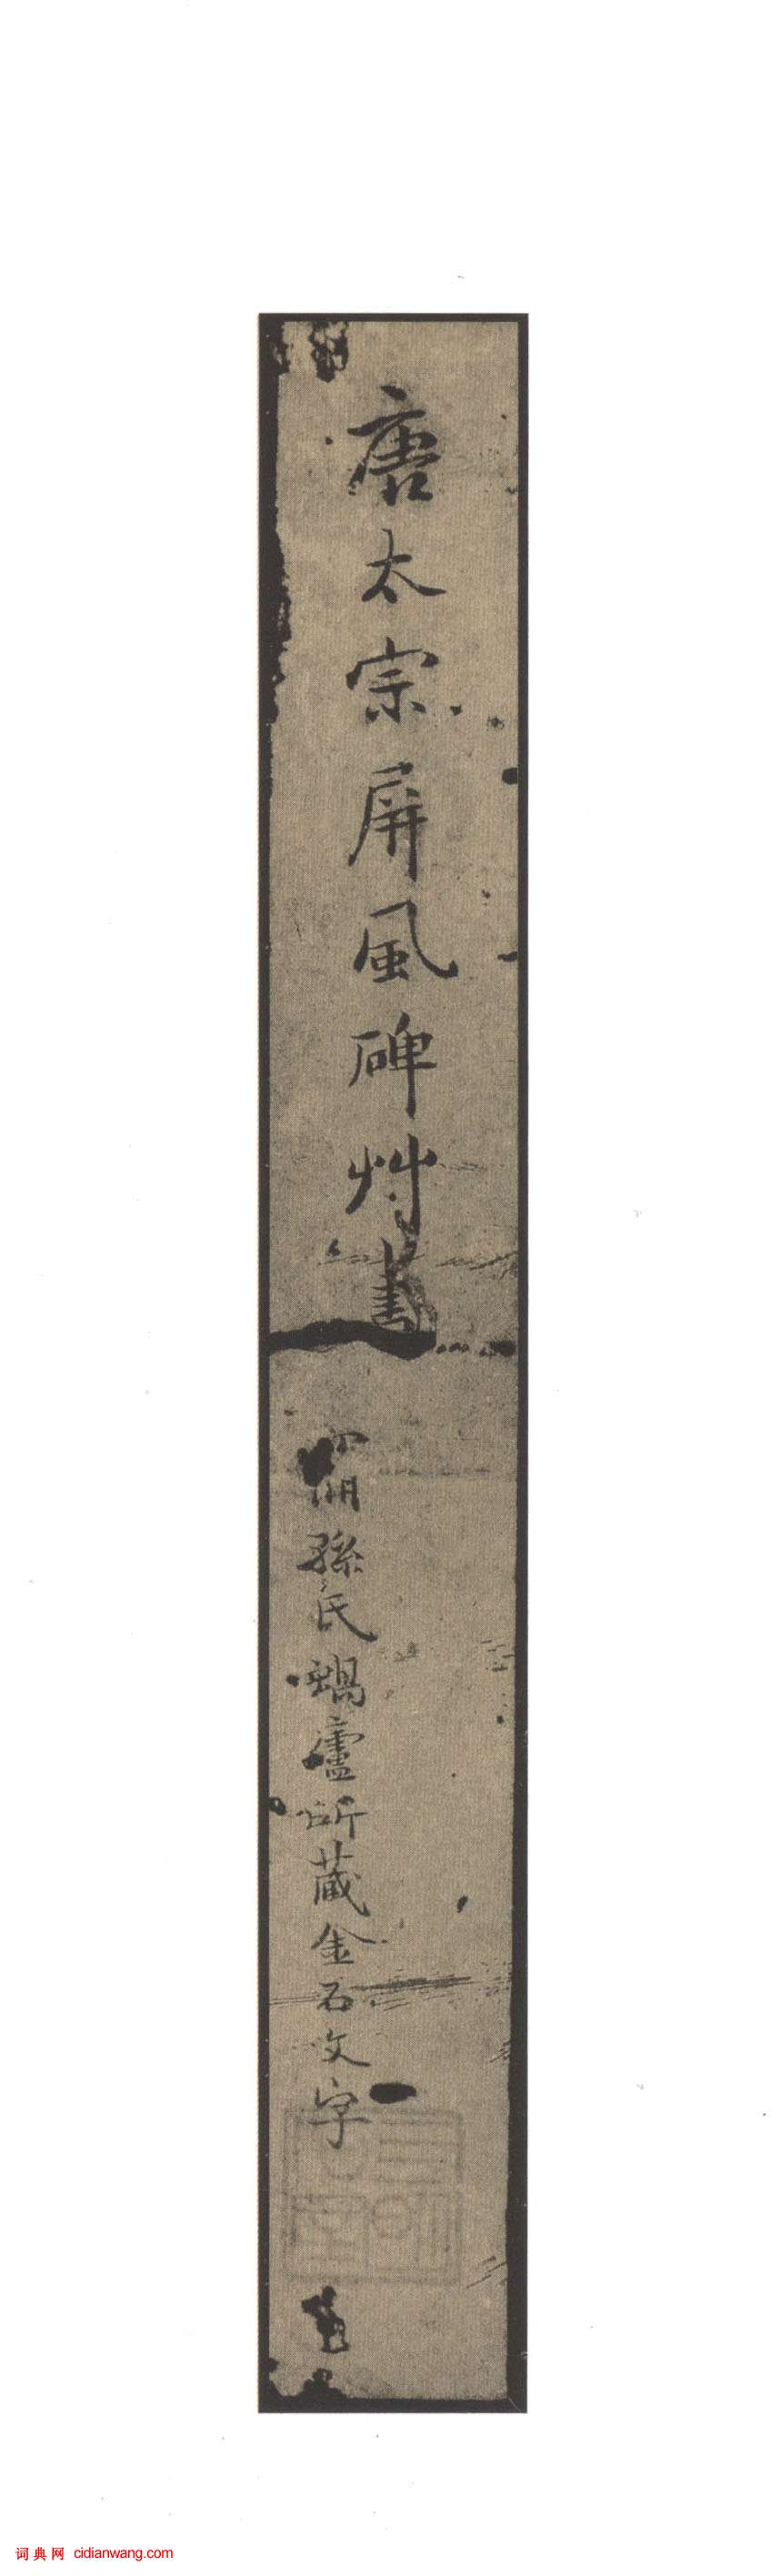 唐太宗屏風碑艸書
孫氏蝸廬所藏金石文字
词典网 cidianwang.com